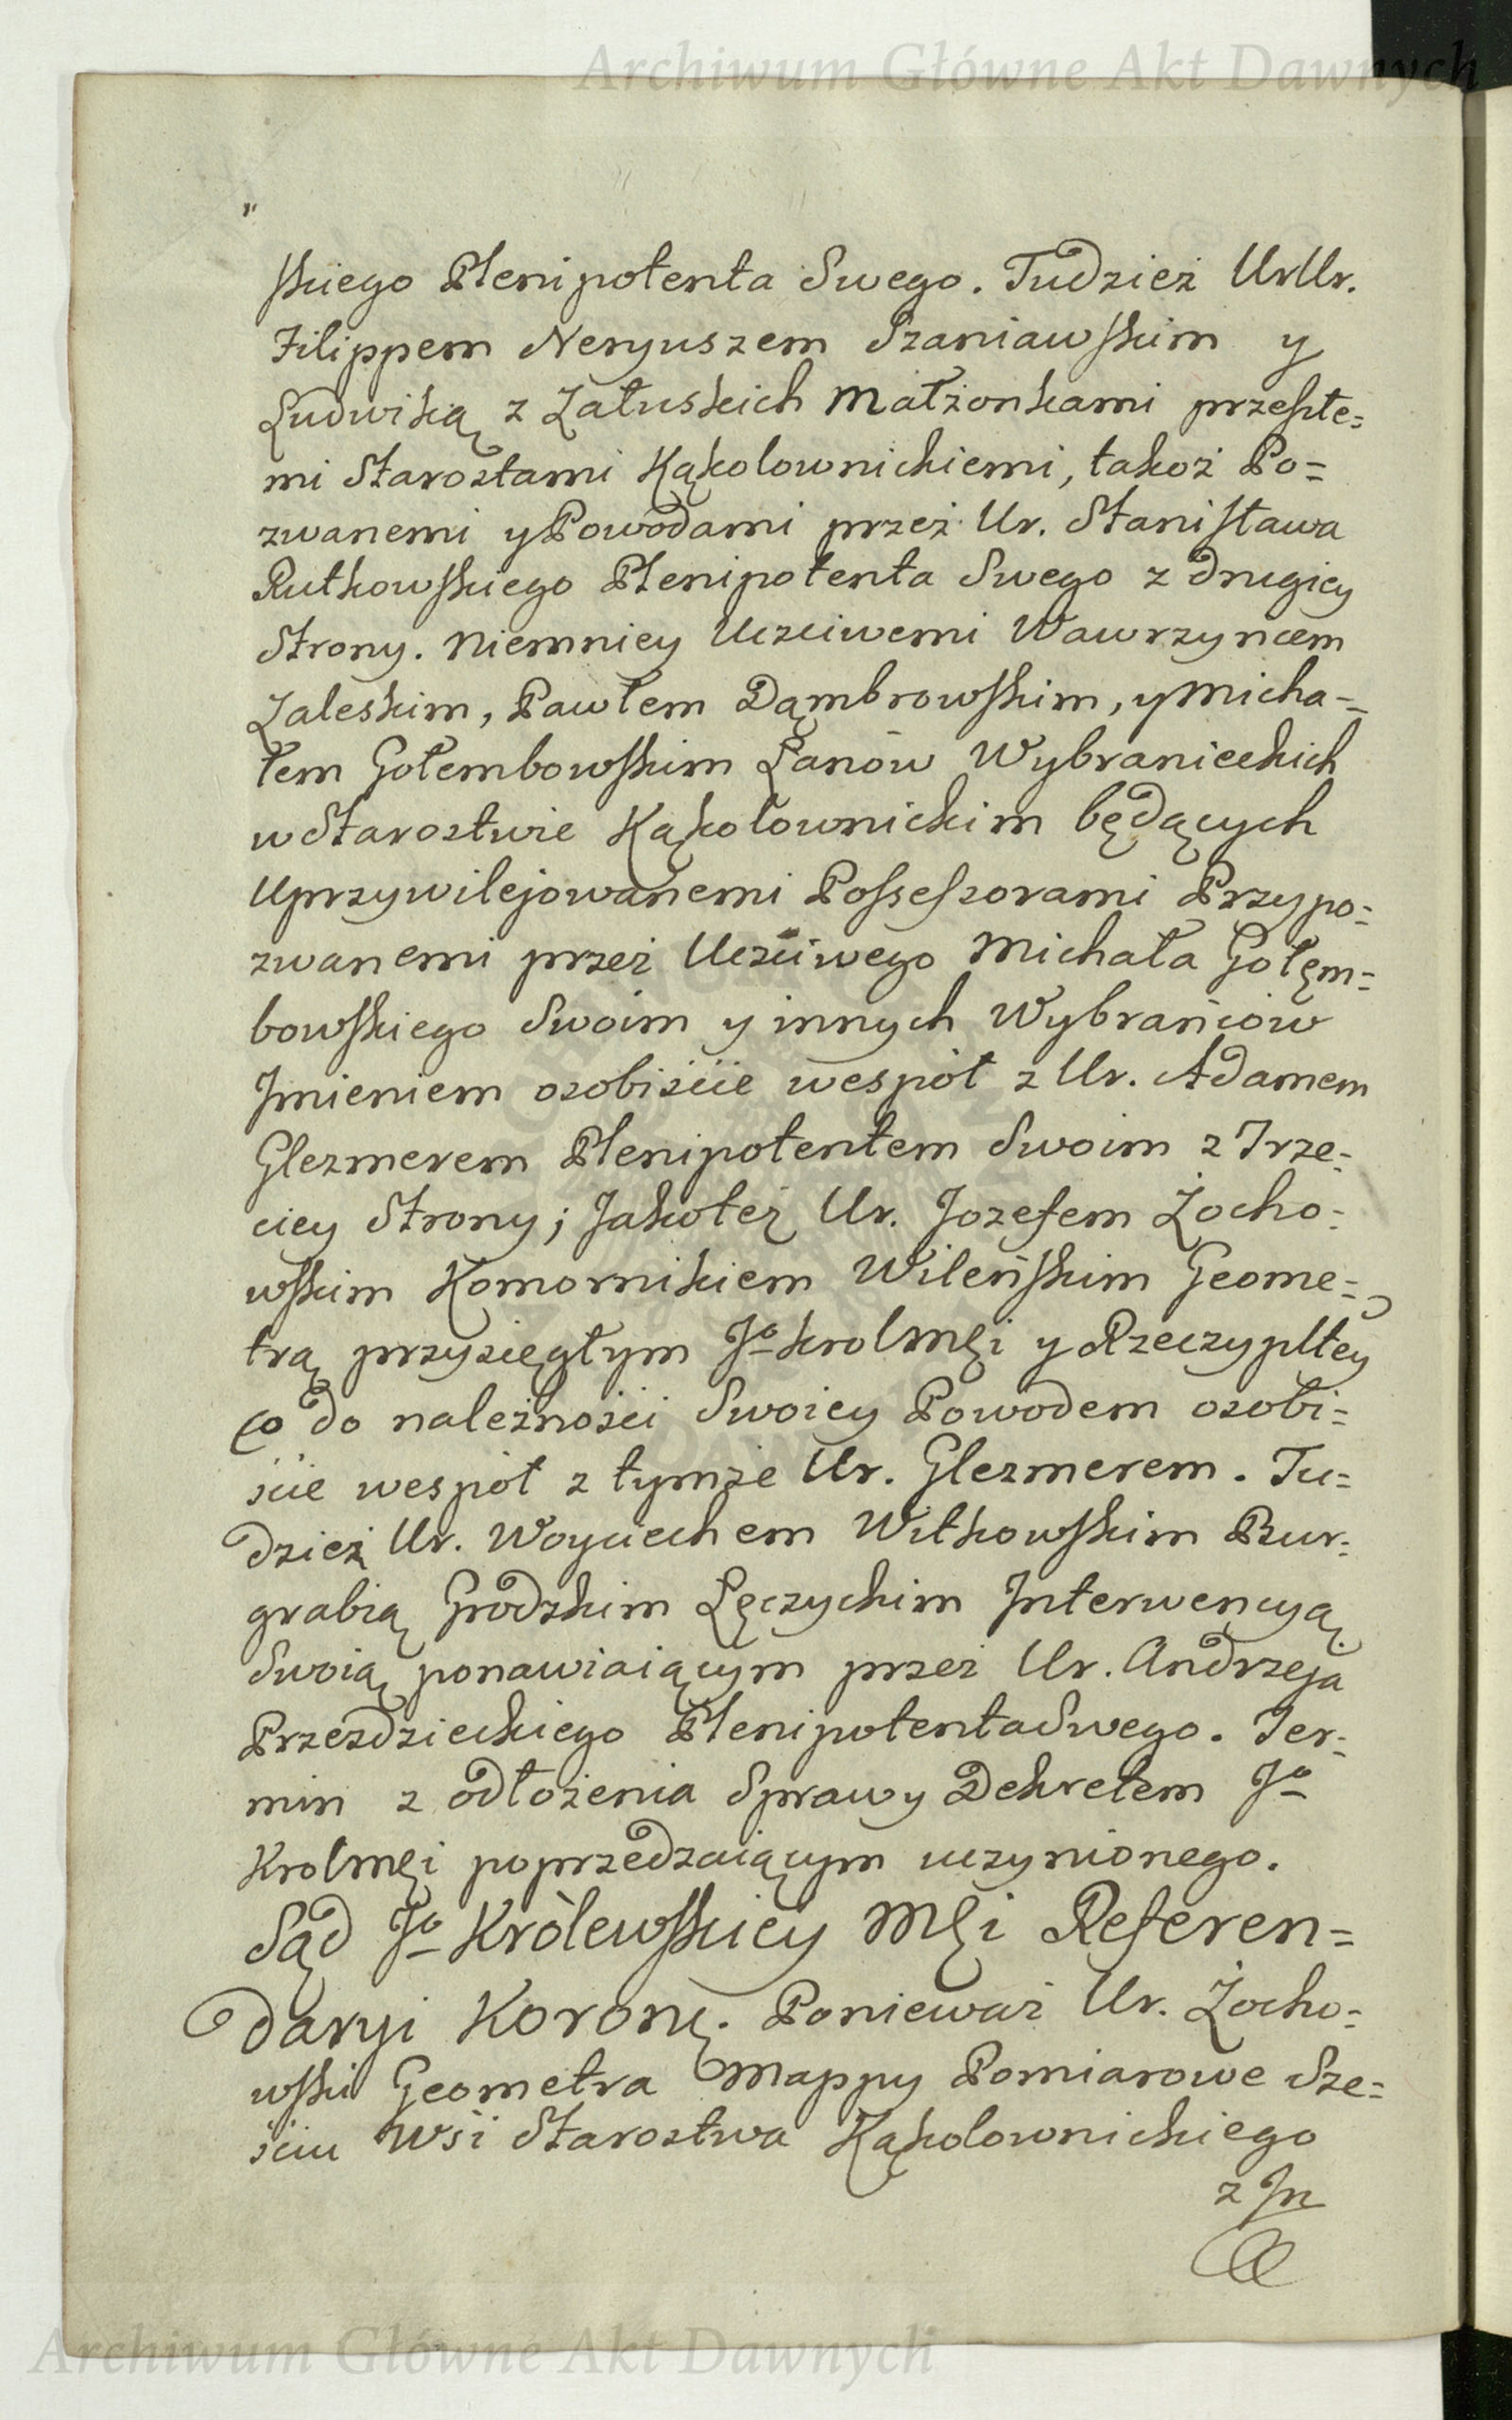 Archiwum Główne Akt Dawnych
skiego Plenipotenta Swego. Tudzież UrUr.
Filippem Neryuszem Szaniawskim y
Ludwiką z Załuskich Małżonkami przeszłe=
mi Starostami Kąkolownickiemi, takoż Po=
zwanemi y Powodami przez Ur. Stanisława
Rutkowskiego Plenipotenta Swego z drugiey
Strony. Niemniey Uczciwemi Wawrzyncem
Zaleskim, Pawłem Dąmbrowskim, y Micha=
łem Gołembowskim Łanów Wybranieckich
w Starostwie Kąkolownickim będących
Uprzywilejowanemi Possessorami Przypo=
zwanemi przez Uczciwego Michała Gołęm=
bowskiego Swoim y innych Wybrańców
Jmieniem osobiście wespół z Ur. Adamem
Glezmerem Plenipotentem Swoim z Trze=
ciey Strony; Jakoteż Ur. Jozefem Żocho=
wskim Komornikiem Wileńskim Geome=
trą przysięgłym Jo Krolmći y Rzeczypltey
co do należności Swoiey Powodem osobi=
ście wespół z tymże Ur. Glezmerem. Tu=
dzież Ur. Woyciechem Witkowskim Bur=
grabią Grodzkim Łęczyckim Interwencyą
Swoią ponawiaiącym przez Ur. Andrzeja
Przezdzieckiego Plenipotenta Swego. Ter=
min z odłożenia Sprawy Dekretem Jo
Krolmći poprzedzaiącym uczynionego.
Sąd Jo Królewskiey Mći Referen=
daryi Koronę. Ponieważ Ur. Żocho=
wski Geometra Mappy Pomiarowe Sze=
ściu Wsi Starostwa Kąkolownickiego
z Jn
Archiwum Główne Akt Dawnych